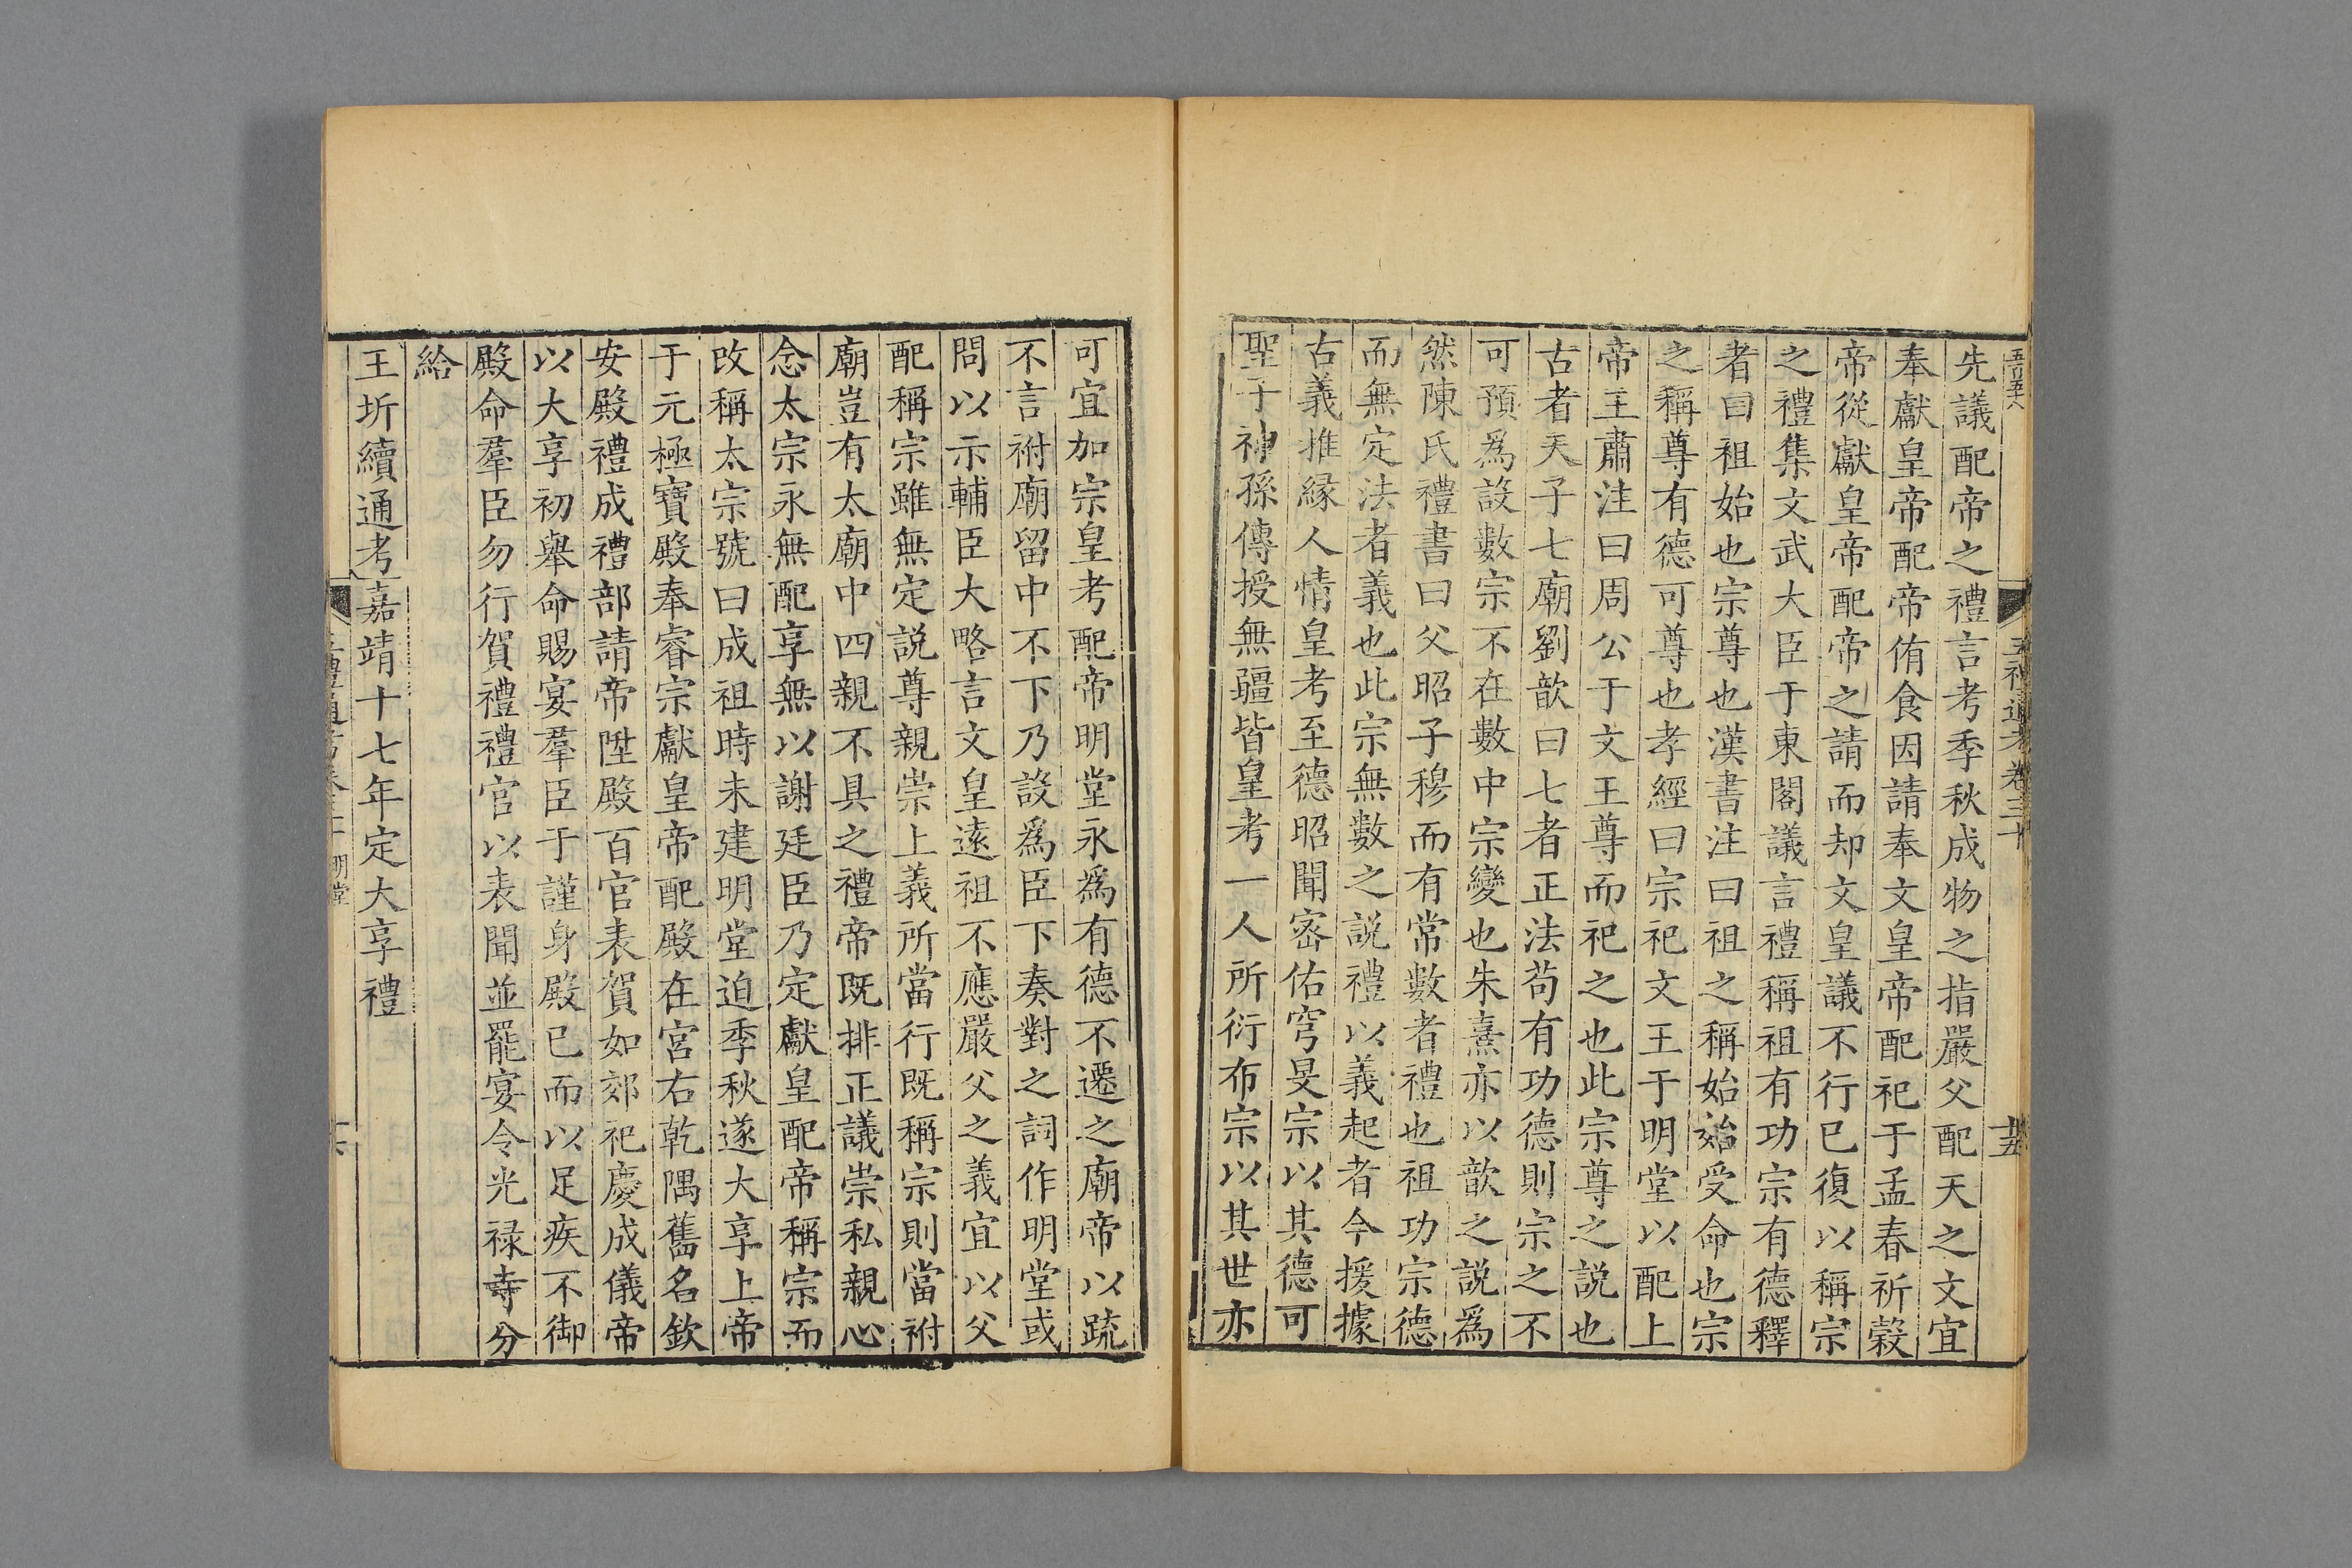 五禮通考卷三十
先議配帝之禮言考季秋成物之指嚴父配天之文宜
奉獻皇帝配帝侑食因請奉文皇帝配祀于孟春祈穀
帝從獻皇帝配帝之請而却文皇議不行已復以稱宗
之禮集文武大臣于東閣議言禮稱祖有功宗有德釋
者曰祖始也宗尊也漢書注曰祖之稱始始受命也宗
之稱尊有德可尊也孝經曰宗祀文王于明堂以配上
帝王肅注曰周公于文王尊而祀之也此宗尊之說也
古者天子七廟劉歆曰七者正法苟有功德則宗之不
可預爲設數宗不在數中宗變也朱熹亦以歆之說爲
然陳氏禮書曰父昭子穆而有常數者禮也祖功宗德
而無定法者義也此宗無數之說禮以義起者今援據
古義推緣人情皇考至德昭聞密佑穹旻宗以其德可
聖子神孫傳授無疆皆皇考一人所衍布宗以其世亦
可宜加宗皇考配帝明堂永爲有德不遷之廟帝以䟽
不言祔廟留中不下乃設爲臣下奏對之詞作明堂或
問以示輔臣大略言文皇遠祖不應嚴父之義宜以父
配稱宗雖無定說尊親崇上義所當行既稱宗則當祔
廟豈有太廟中四親不具之禮帝既排正議崇私親心
念太宗永無配享無以謝廷臣乃定獻皇配帝稱宗而
改稱太宗號曰成祖時未建明堂迫季秋遂大享上帝
于元極寶殿奉睿宗獻皇帝配殿在宮右乾隅舊名欽
安殿禮成禮部請帝陞殿百官表賀如郊祀慶成儀帝
以大享初舉命賜宴羣臣于謹身殿已而以足疾不御
殿命羣臣勿行賀禮禮官以表聞並罷宴令光祿寺分
給
王圻續通考嘉靖十七年定大享禮
明堂